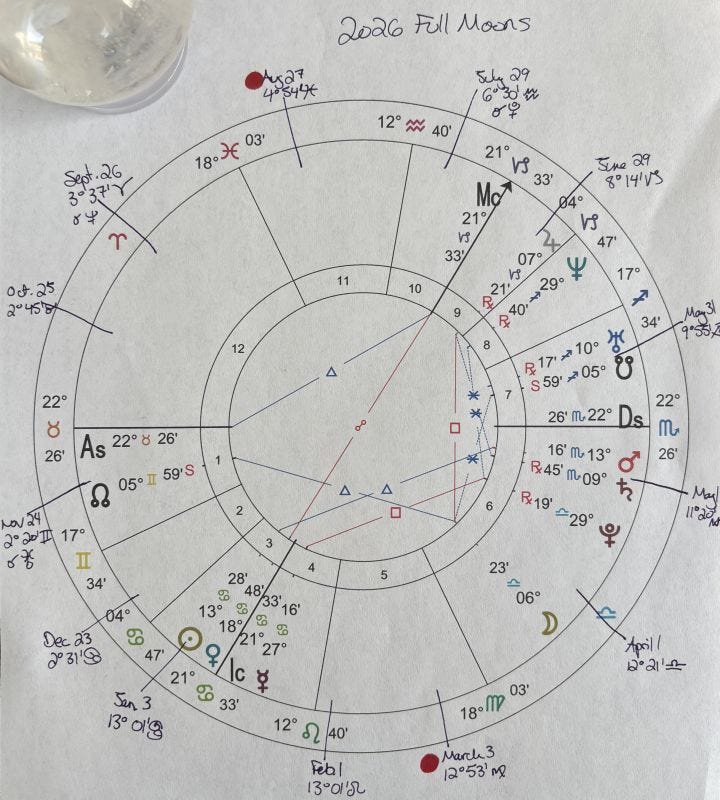 2026 Full Moons
Aug 27
4° 54' ♓
July 29
6° 30' ♒
☌ ♀
June 29
8° 14' ♑
Sept. 26
3° 37' ♈
☌ ♆
Oct. 25
2° 45' ♉
May 31
9° 55' ♐
May 1
11° 20' ♏
April 1
12° 21' ♎
March 3
12° 53' ♍
Feb 1
13° 01' ♌
Jan 3
13° 01' ♋
Dec 23
2° 31' ♋
Nov 24
2° 20' ♊
18° ♓ 03'
12° ♒ 40'
21° ♑ 33'
04° ♑ 47'
17° ♐ 34'
22° ♏ 26'
♎
18° ♍ 03'
12° ♌ 40'
21° ♋ 33'
04° ♋ 47'
17° ♊ 34'
22° ♉ 26'
♈
Mc 21° ♑ 33'
♃ 07° ♑ 21' ℞
♆ 29° ♐ 40' ℞
♅ 10° ♐ 17' ℞
☋ 05° ♐ 59' S
Ds 22° ♏ 26'
♂ 13° ♏ 16'
♄ 09° ♏ 45' ℞
♇ 29° ♎ 19' ℞
☽ 06° ♎ 23'
☿ 27° ♋ 16'
Ic 21° ♋ 33'
♀ 18° ♋ 48'
☉ 13° ♋ 28'
☊ 05° ♊ 59' S
As 22° ♉ 26'
1
2
3
4
5
6
7
8
9
10
11
12